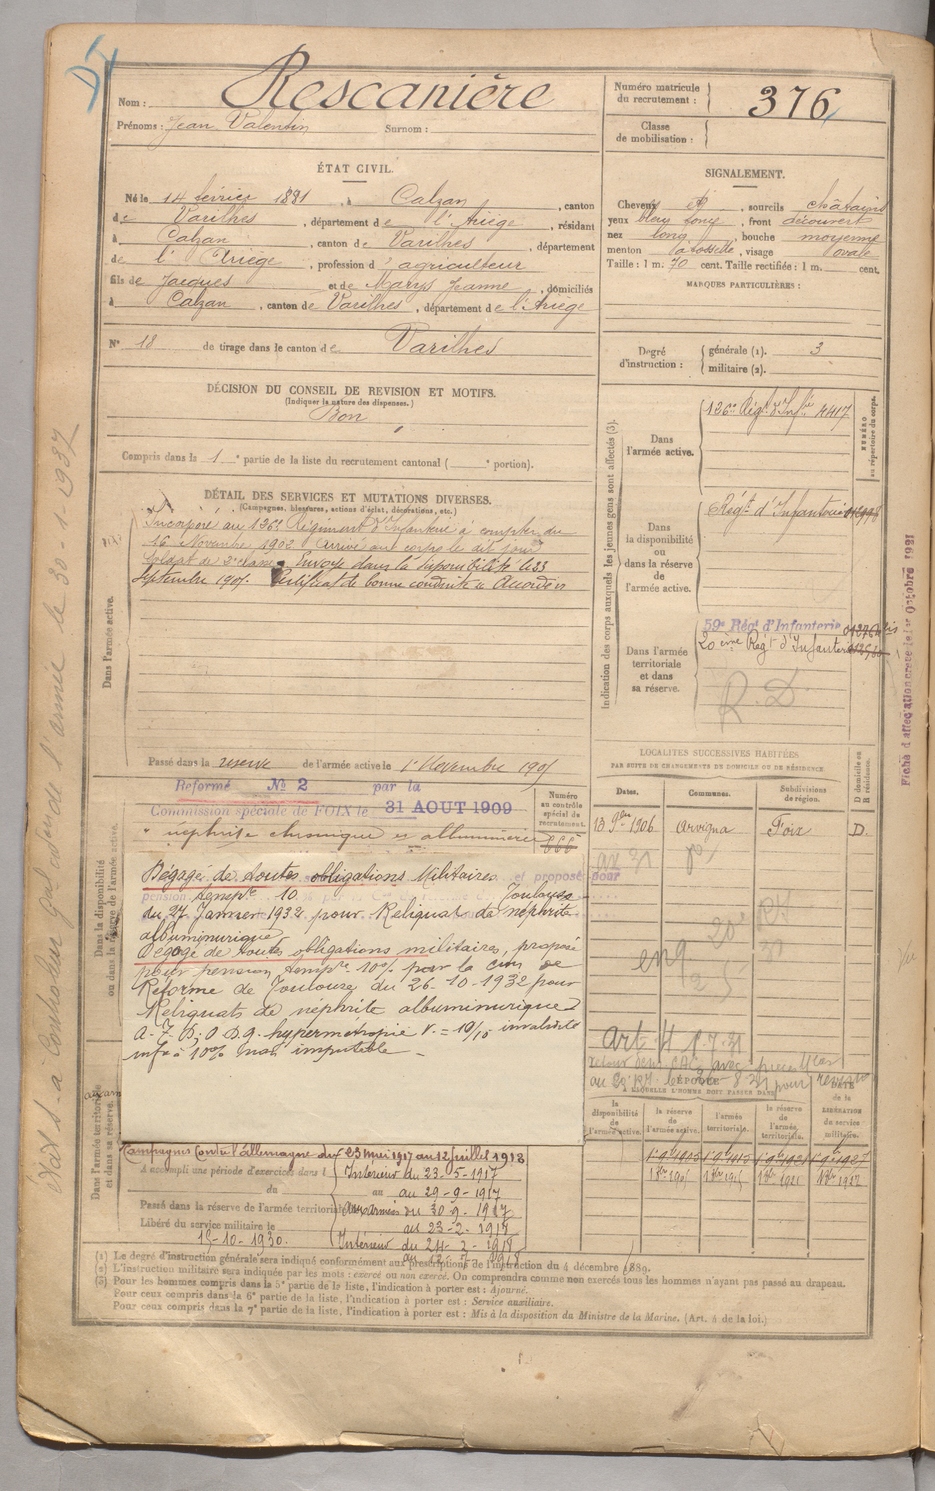 Nom : Rescanière
Prénoms : Jean Valentin Surnom :
Numéro matricule du recrutement : 376
Classe de mobilisation :
ÉTAT CIVIL.
Né le 14 février 1881, à Calzan, canton
de Varilhes, département de l'Ariège, résidant
à Calzan, canton de Varilhes, département
de l'Ariège, profession d'agriculteur
fils de Jacques et de Marys Jeanne, domiciliés
à Calzan, canton de Varilhes, département de l'Ariège
N° 18 de tirage dans le canton de Varilhes
SIGNALEMENT.
Cheveux et, sourcils châtains
yeux bleu, front découvert
nez long, bouche moyenne
menton, visage ovale
Taille : 1 m. 70 cent. Taille rectifiée : 1 m. cent.
MARQUES PARTICULIÈRES :
Degré d'instruction : générale (1). 3
militaire (2).
DÉCISION DU CONSEIL DE REVISION ET MOTIFS.
(Indiquer la nature des dispenses.)
Bon
Compris dans la 1e partie de la liste du recrutement cantonal ( e portion).
DÉTAIL DES SERVICES ET MUTATIONS DIVERSES.
(Campagnes, blessures, actions d'éclat, décorations, etc.)
Dans l'armée active.
Incorporé au 126e Régiment d'Infanterie à compter du
16 Novembre 1902 Arrivé au corps le dit jour
Soldat de 2e classe. Envoyé dans la disponibilité le 23
Septembre 1905. Certificat de bonne conduite Accordé
Passé dans la réserve de l'armée active le 1 Novembre 1905
Indication des corps auxquels les jeunes gens sont affectés (3).
NUMÉRO au répertoire du corps.
Dans l'armée active.
126e Régt d'Infie 4417
Dans la disponibilité ou dans la réserve de l'armée active.
Régt d'Infanterie
Dans l'armée territoriale et dans sa réserve.
59e Régt d'Infanterie
20ème Régt d'Infanterie
R. D
Dans la disponibilité ou dans la réserve de l'armée active.
Réformé N° 2 par la
Commission spéciale de FOIX le 31 AOUT 1909
néphrite chronique et albuminurie
Numéro au contrôle spécial du recrutement.
Dégagé de toutes obligations Militaires et proposé pour
pension tempre 10 Toulouse
du 27 Janvier 1932 pour Reliquat de néphrite
albuminurique
Dégagé de toutes obligations militaires, proposé
pour pension tempre 10% par la Cion de
Réforme de Toulouse du 26-10-1932 pour
Reliquats de néphrite albuminurique
hypermétropie V. = 10/10 invalidité
infre à 10% non imputable
Campagnes Contre l'Allemagne du 23 mai 1917 au 12 juillet 1918
Dans l'armée territoriale et dans sa réserve.
A accompli une période d'exercices dans l
du au
Passé dans la réserve de l'armée territoriale
Libéré du service militaire le
15-10-1930.
Intérieur du 23-5-1917
au 29-9-1917
aux armées du 30-9-1917
au 23-2-1918
Intérieur du 24-2-1918
au 12-7-1918
LOCALITÉS SUCCESSIVES HABITÉES
PAR SUITE DE CHANGEMENTS DE DOMICILE OU DE RÉSIDENCE.
Dates. Communes. Subdivisions de région. D domicile ou R résidence.
13 9bre 1906 Arvigna Foix D.
Art 4
ÉPOQUE
A LAQUELLE L'HOMME DOIT PASSER DANS
la disponibilité de l'armée active. la réserve de l'armée active. l'armée territoriale. la réserve de l'armée territoriale. DATE de la LIBÉRATION du service militaire.
(1) Le degré d'instruction générale sera indiqué conformément aux prescriptions de l'instruction du 4 décembre 1889.
(2) L'instruction militaire sera indiquée par les mots : exercé ou non exercé. On comprendra comme non exercés tous les hommes n'ayant pas passé au drapeau.
(3) Pour les hommes compris dans la 5e partie de la liste, l'indication à porter est : Ajourné.
Pour ceux compris dans la 6e partie de la liste, l'indication à porter est : Service auxiliaire.
Pour ceux compris dans la 7e partie de la liste, l'indication à porter est : Mis à la disposition du Ministre de la Marine. (Art. 4 de la loi.)